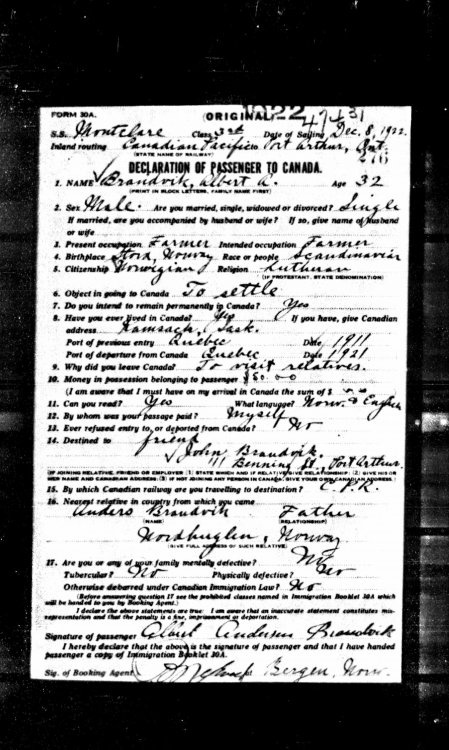 FORM 30A. (ORIGINAL)
S.S. Montclare Class 3rd Date of Sailing Dec. 8, 1922.
Inland routing Canadian Pacific to Port Arthur, Ont.
(STATE NAME OF RAILWAY)
DECLARATION OF PASSENGER TO CANADA.
1. NAME Brandvik, Albert A. Age 32
(PRINT IN BLOCK LETTERS, FAMILY NAME FIRST)
2. Sex Male. Are you married, single, widowed or divorced? Single
If married, are you accompanied by husband or wife? If so, give name of husband
or wife
3. Present occupation Farmer Intended occupation Farmer
4. Birthplace Stord, Norway Race or people Scandinavian
5. Citizenship Norwegian Religion Lutheran
(IF PROTESTANT, STATE DENOMINATION)
6. Object in going to Canada To settle
7. Do you intend to remain permanently in Canada? Yes
8. Have you ever lived in Canada? Yes If you have, give Canadian
address Kamsack, Sask.
Port of previous entry Quebec Date 1911
Port of departure from Canada Quebec Date 1921
9. Why did you leave Canada? To visit relatives.
10. Money in possession belonging to passenger $50.00
(I am aware that I must have on my arrival in Canada the sum of $
11. Can you read? Yes What language? Norw. & English
12. By whom was your passage paid? Myself
13. Ever refused entry to, or deported from Canada? No
14. Destined to friend
John Brandvik.
111 Benning St, Port Arthur.
(IF JOINING RELATIVE, FRIEND OR EMPLOYER (1) STATE WHICH AND IF RELATIVE GIVE RELATIONSHIP. (2) GIVE HIS OR
HER NAME AND CANADIAN ADDRESS. (3) IF NOT JOINING ANY PERSON IN CANADA, GIVE YOUR OWN CANADIAN ADDRESS.)
15. By which Canadian railway are you travelling to destination? C.P.R.
16. Nearest relative in country from which you came
Anders Brandvik Father
(NAME) (RELATIONSHIP)
Nordhuglen, Norway
(GIVE FULL ADDRESS OF SUCH RELATIVE)
17. Are you or any of your family mentally defective? No
Tubercular? No Physically defective? No
Otherwise debarred under Canadian Immigration Law? No
(Before answering question 17 see the prohibited classes named in Immigration Booklet 30A which
will be handed to you by Booking Agent.)
I declare the above statements are true: I am aware that an inaccurate statement constitutes mis-
representation and that the penalty is a fine, imprisonment or deportation.
Signature of passenger Albert Andersen Brandvik
I hereby declare that the above is the signature of passenger and that I have handed
passenger a copy of Immigration Booklet 30A.
Sig. of Booking Agent Bergen, Norw.